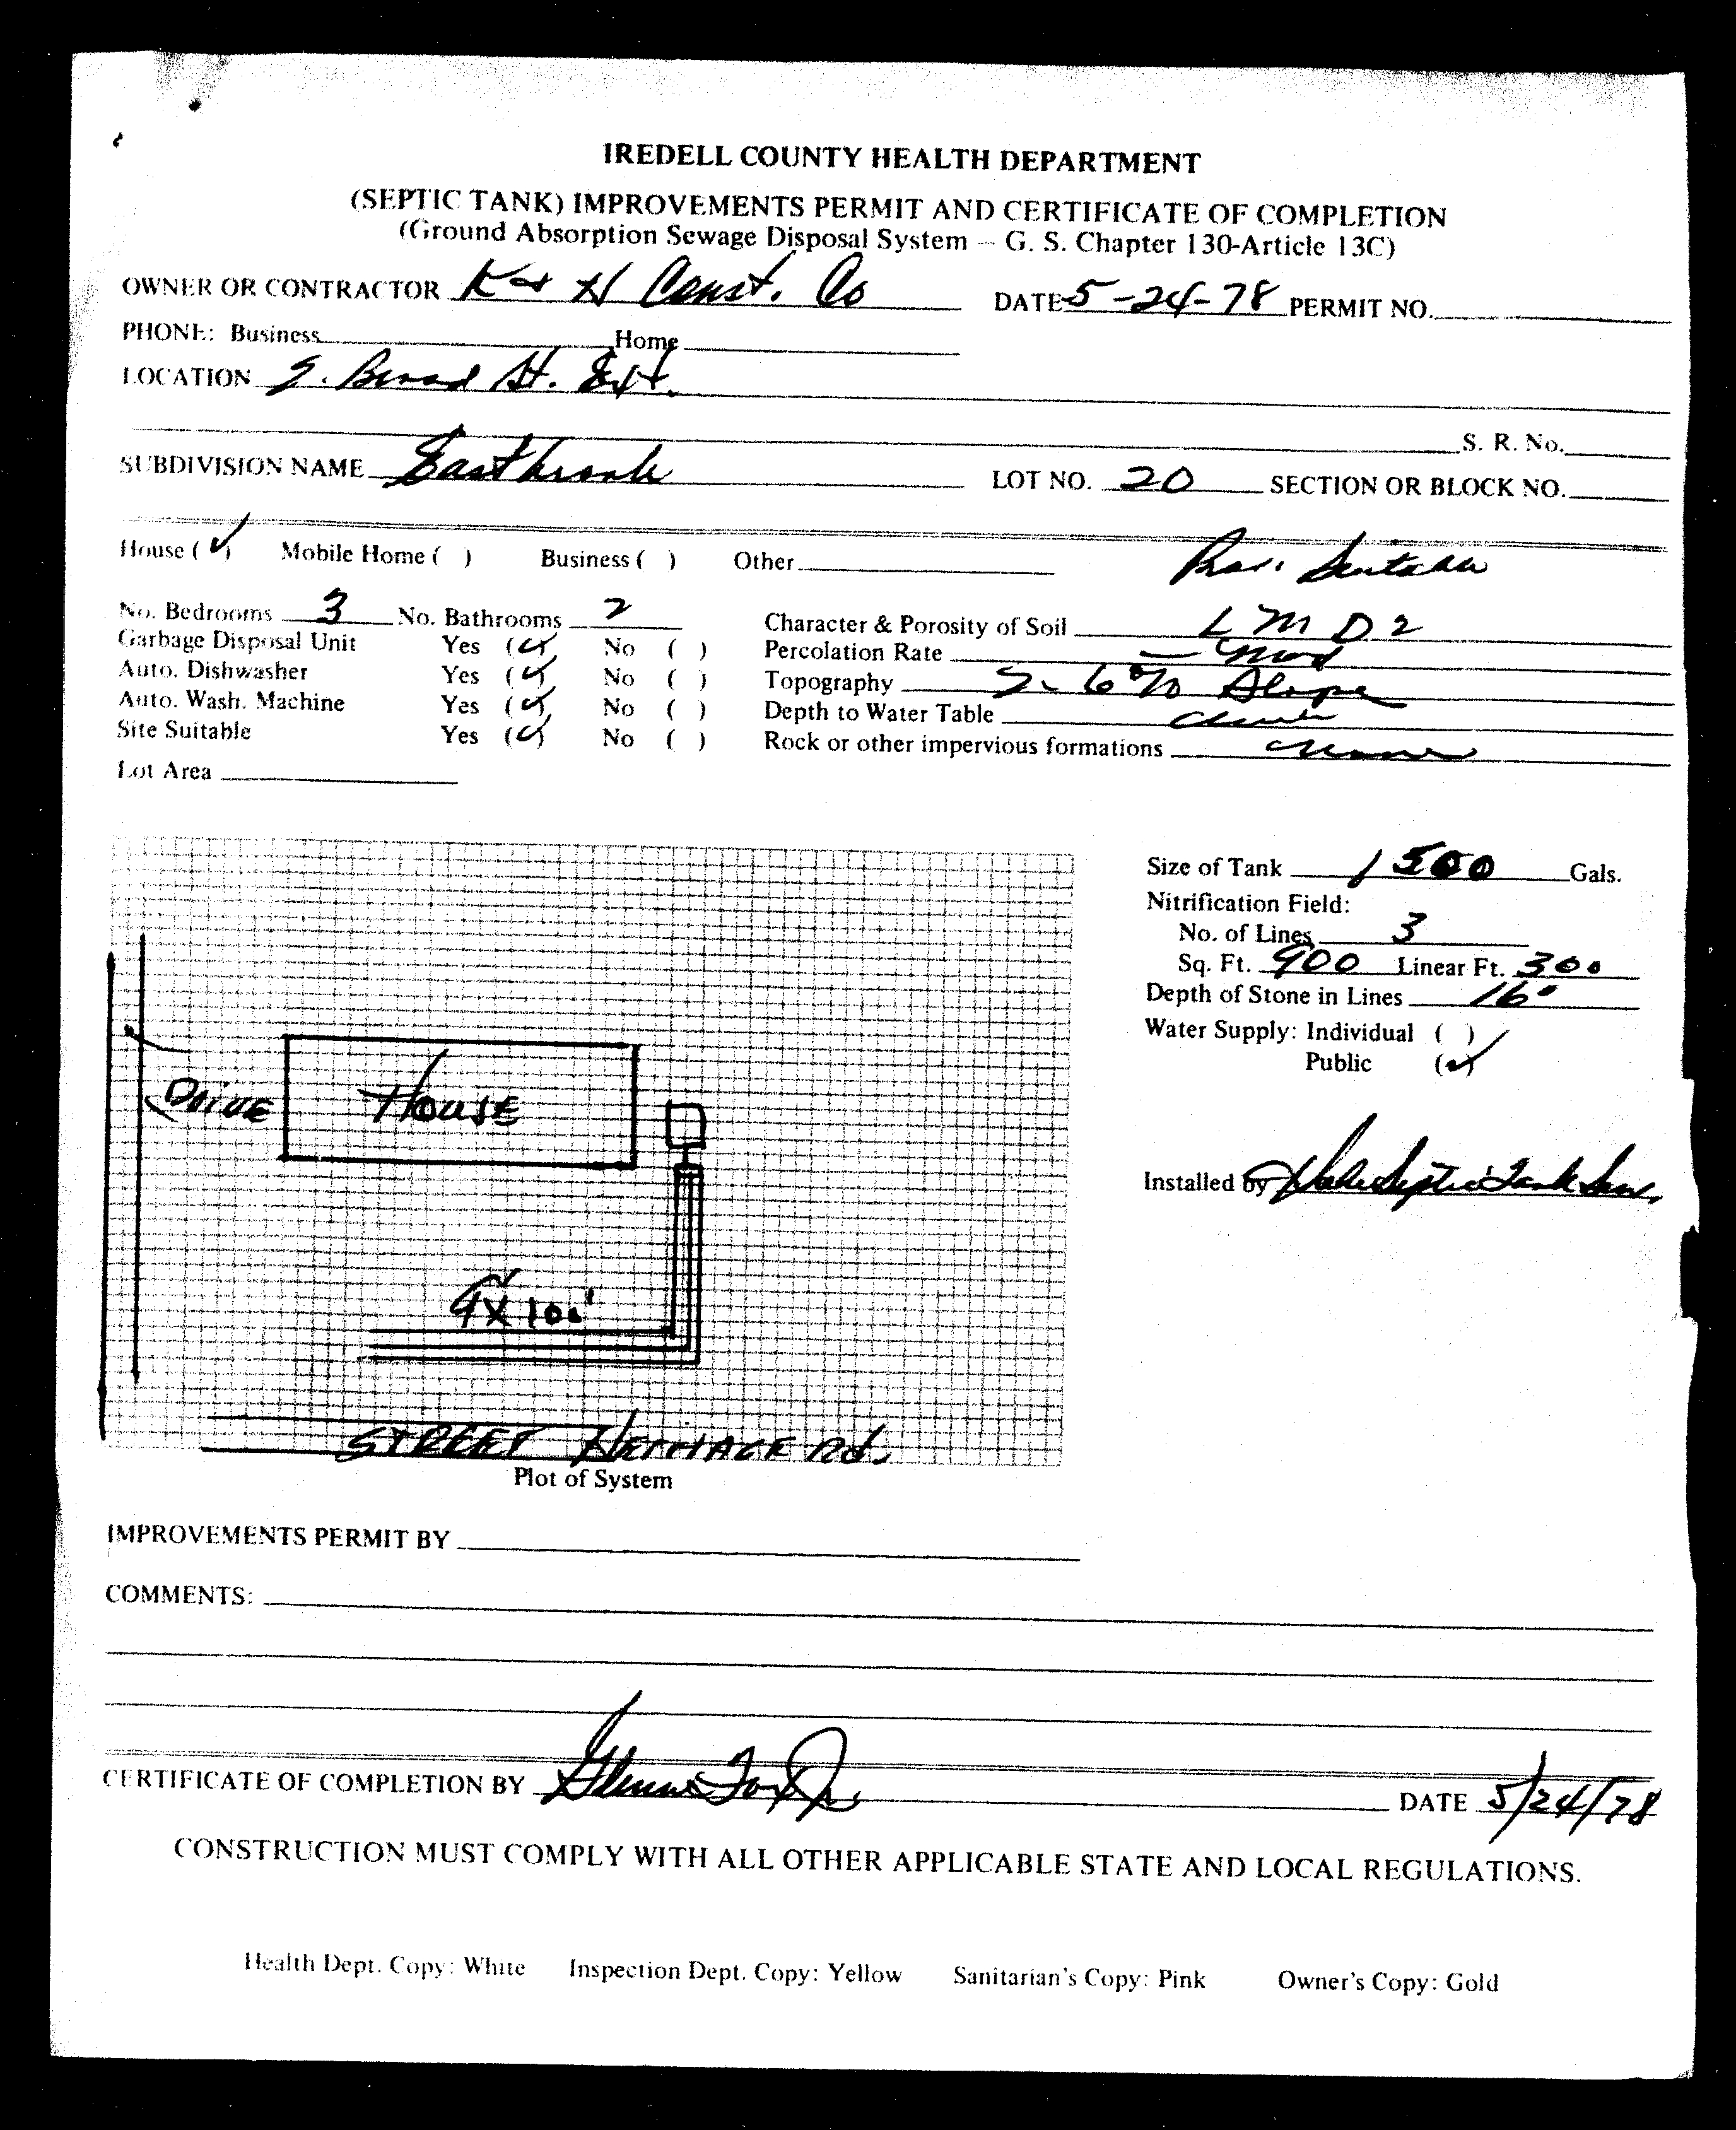 IREDELL COUNTY HEALTH DEPARTMENT
(SEPTIC TANK) IMPROVEMENTS PERMIT AND CERTIFICATE OF COMPLETION
(Ground Absorption Sewage Disposal System – G. S. Chapter 130-Article 13C)
OWNER OR CONTRACTOR K & H Const. Co DATE 5-24-78 PERMIT NO.
PHONE: Business Home
LOCATION S. Broad St. Ext.
S. R. No.
SUBDIVISION NAME Eastbrook LOT NO. 20 SECTION OR BLOCK NO.
House (✓) Mobile Home ( ) Business ( ) Other
No. Bedrooms 3 No. Bathrooms 2 Character & Porosity of Soil L M D 2
Garbage Disposal Unit Yes (✓) No ( ) Percolation Rate Mod
Auto. Dishwasher Yes (✓) No ( ) Topography 2-6% Slope
Auto. Wash. Machine Yes (✓) No ( ) Depth to Water Table
Site Suitable Yes (✓) No ( ) Rock or other impervious formations none
Lot Area
Size of Tank 1500 Gals.
Nitrification Field:
No. of Lines 3
Sq. Ft. 900 Linear Ft. 300
Depth of Stone in Lines 16"
Water Supply: Individual ( )
Public (✓)
Installed by Septic Tank Serv.
DRIVE HOUSE
X 100'
STREET HERITAGE Rd.
Plot of System
IMPROVEMENTS PERMIT BY
COMMENTS:
CERTIFICATE OF COMPLETION BY DATE 5/24/78
CONSTRUCTION MUST COMPLY WITH ALL OTHER APPLICABLE STATE AND LOCAL REGULATIONS.
Health Dept. Copy: White Inspection Dept. Copy: Yellow Sanitarian's Copy: Pink Owner's Copy: Gold